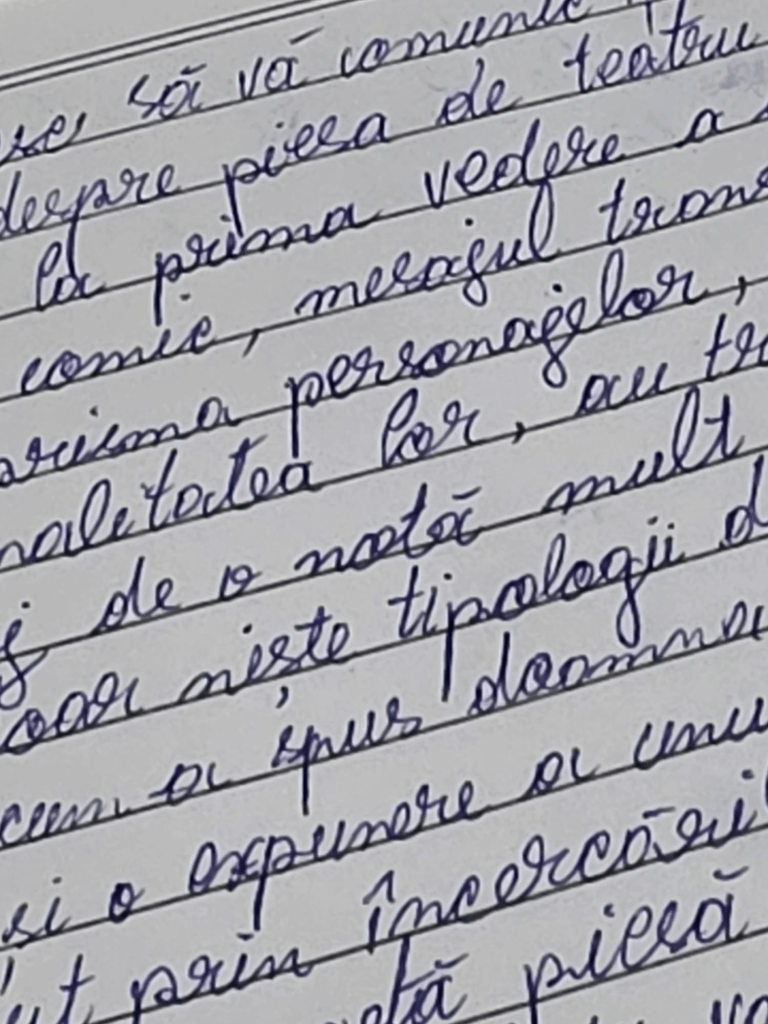 să vă comunic
despre piesa de teatru
la prima vedere a
comic, mesajul trans
arisma personajelor,
nalitatea lor, au tr
j de o notă mult
oar niște tipologii d
cum a spus doamna
si o expunere a unu
ut prin încercăril
tă piesă